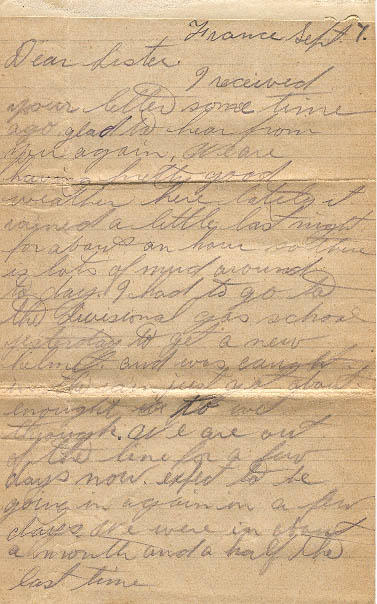 France Sept. 7.
Dear Sister.
I received
your letter some time
ago glad to hear from
you again. We are
having pretty good
weather here lately it
rained a little last night
for about an hour so there
is lots of mud around
to day. I had to go to
the divisional gas school
yesterday to get a new
helmet. and was caught
in the rain just got about
enought to wet
through. We are out
of the line for a few
days now. expect to be
going in again in a few
days. We were in about
a month and a half the
last time